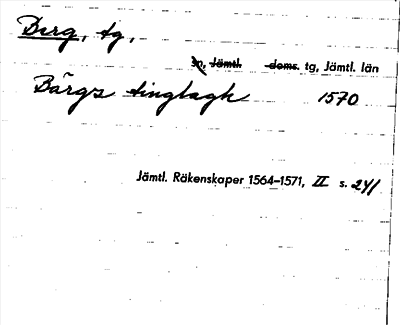 Berg, tg,
sn, Jämtl. -doms. tg, Jämtl. län
Bärgz tinglagh 1570
Jämtl. Räkenskaper 1564-1571, II s. 241